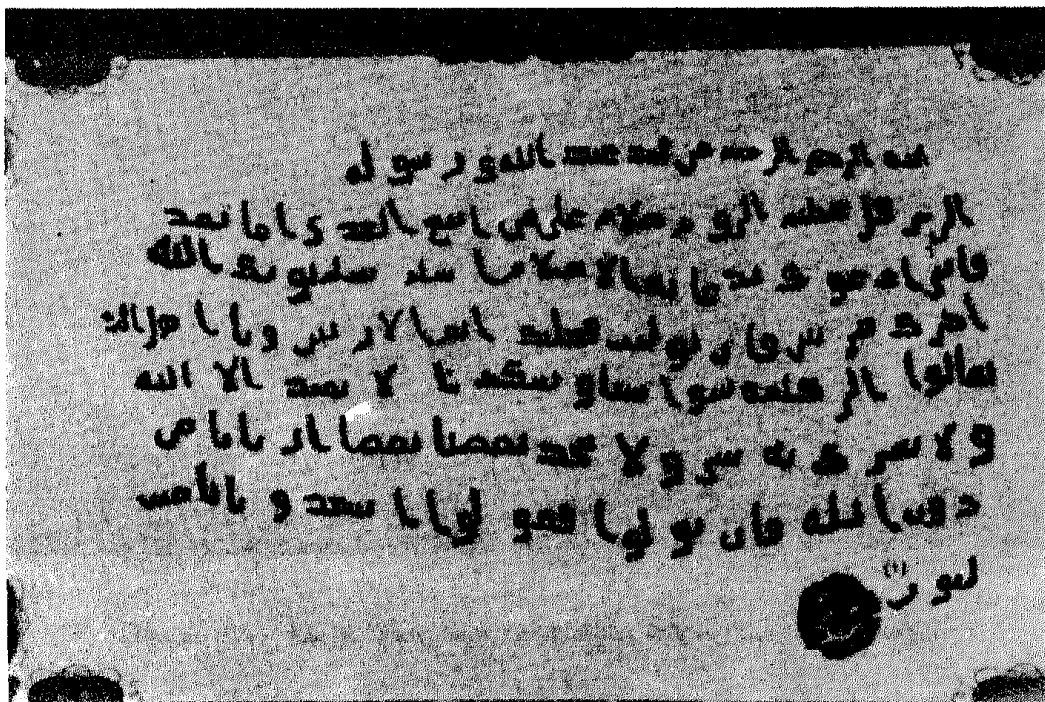 الله الرحمن الرحيم من محمد عبد الله و رسوله
الى هرقل عظيم الروم سلام على من اتبع الهدى اما بعد
فانى ادعوك بدعاية الاسلام اسلم تسلم يوتك الله
اجرك مرتين فان توليت فعليك اثم الا و يا اهل الكت
تعالوا الى كلمة سوا بيننا و بينكم الا نعبد الا الله
و لا نشرك به و لا يتخذ بعضنا بعضا اربابا من
دون الله فان تولوا فقولوا اشهدوا بانا مس
لمون (١)